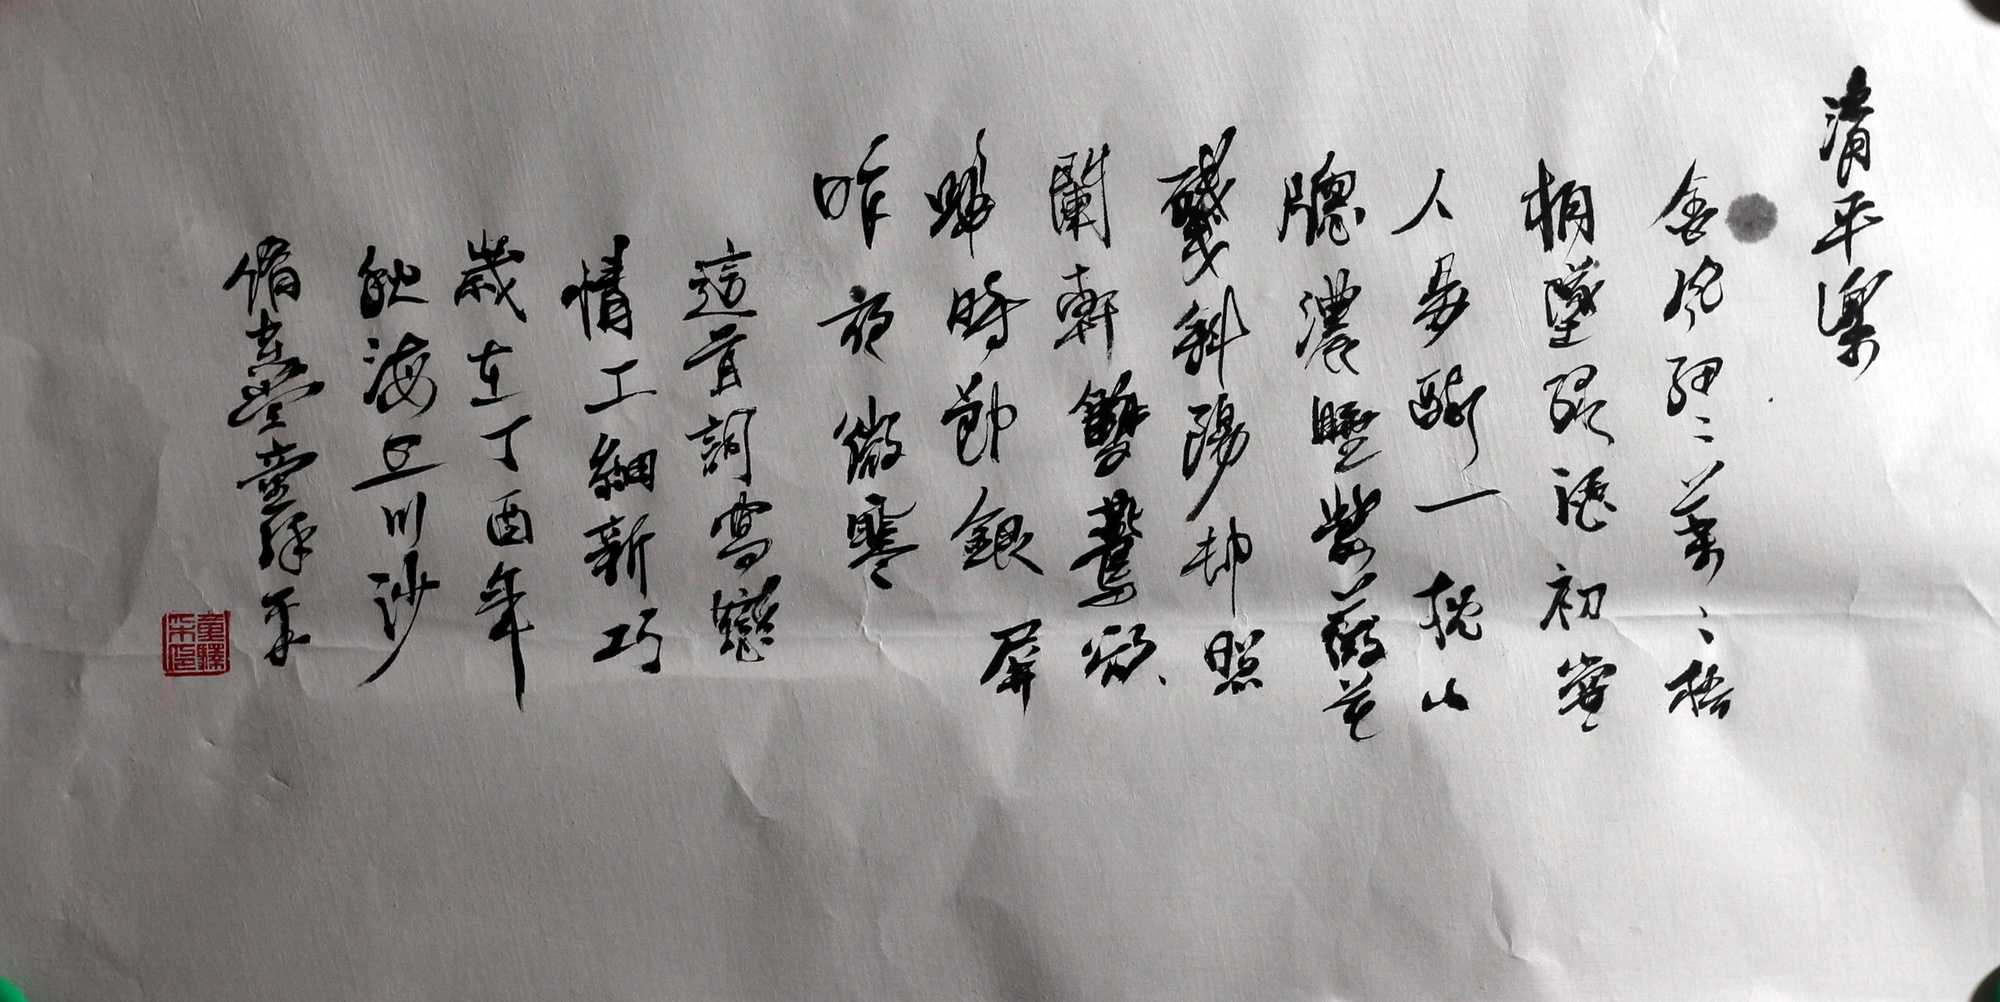 清平樂
金風細〻葉〻梧
桐墜綠酒初嘗
人易醉一枕小
牕濃睡紫薇花
殘斜陽却照
闌軒雙燕欲
歸時節銀屏
昨夜微寒
這首詞寫戀
情工細新巧
歲在丁酉年
秋海上川沙
脩堂童
童驛